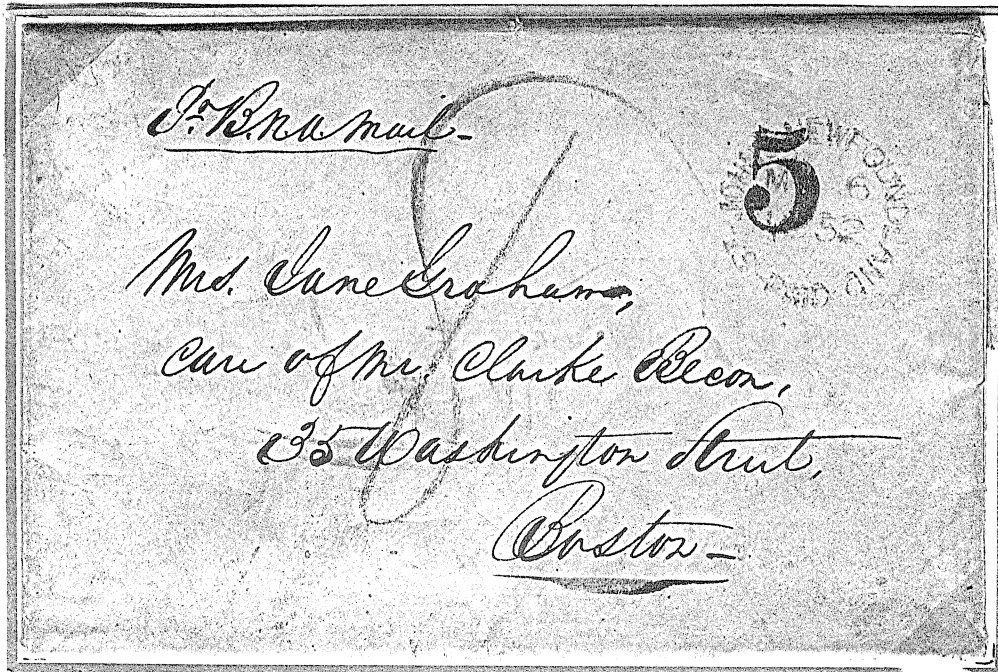 Pr. B.N.A. Mail -
5
ST. JOHN'S NEWFOUNDLAND
6
Mrs. Jane Graham,
Care of Mr. Clarke Becon,
35 Washington Street,
Boston -